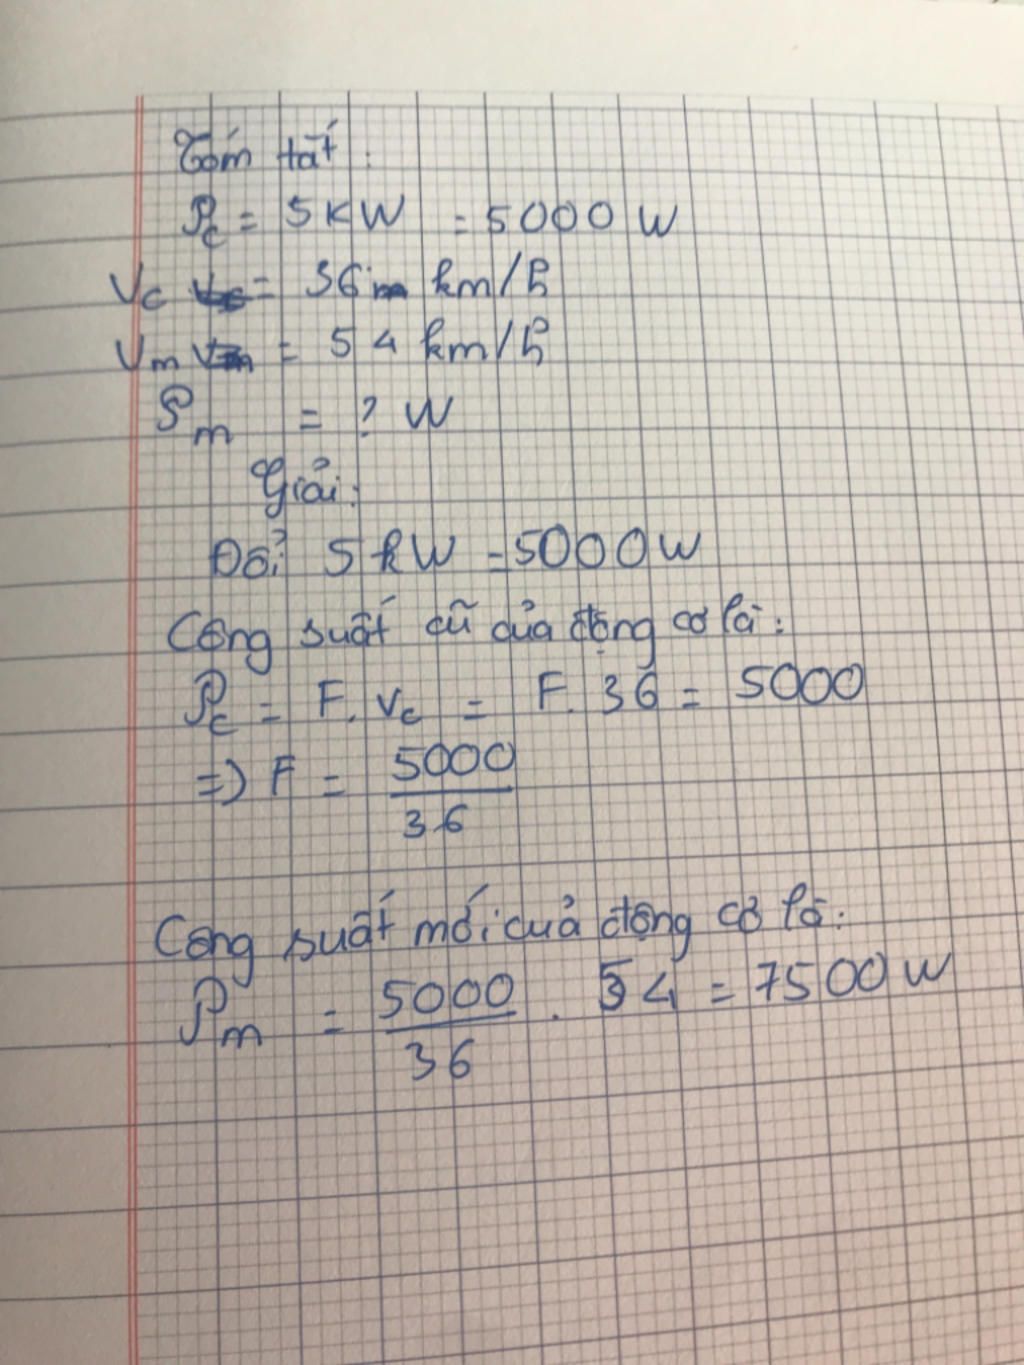 Tóm tắt:
Pc = 5KW = 5000 W
Vc = 36 km/h
Vm = 54 km/h
Pm = ? W
Giải:
Đổi 5 kW = 5000W
Công suất cũ của động cơ là:
Pc = F. Vc = F. 36 = 5000
=) F = 5000/36
Công suất mới cuả động cơ là:
Pm = 5000/36 . 54 = 7500 W